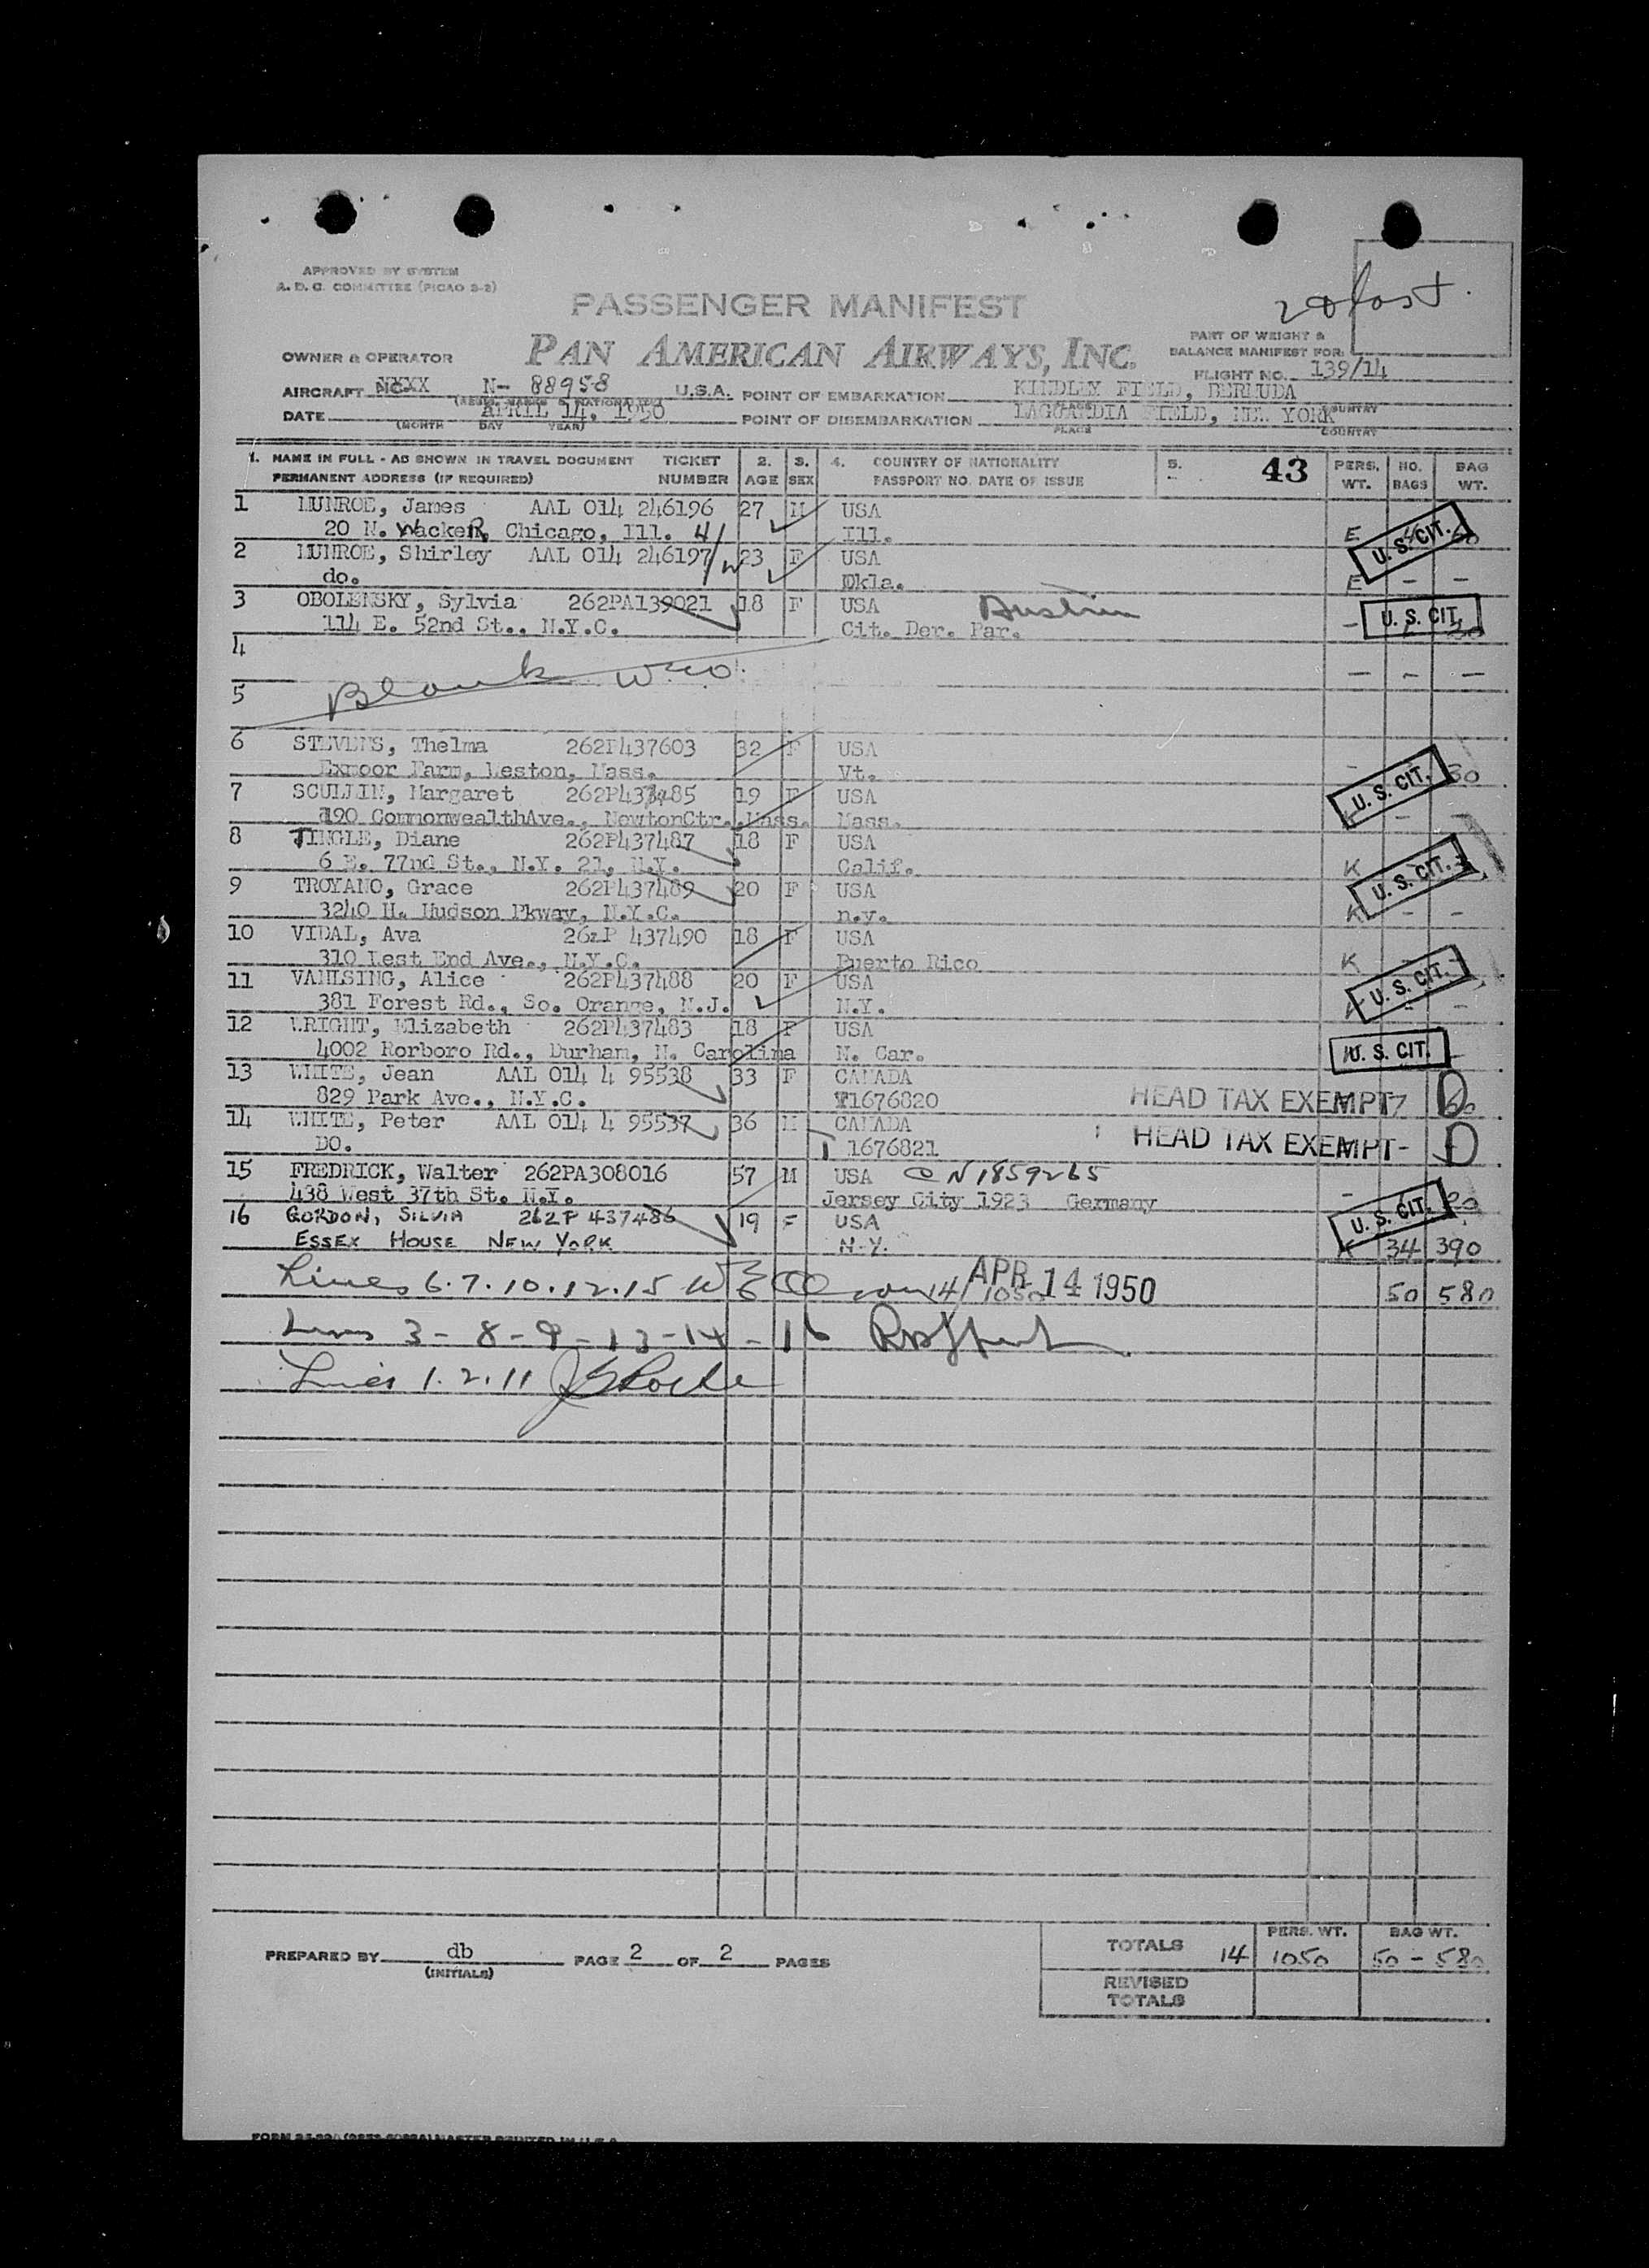 APPROVED BY SYSTEM
A. D. C. COMMITTEE (PICAO 2-2)
PASSENGER MANIFEST
PART OF WEIGHT &
BALANCE MANIFEST FOR:
OWNER & OPERATOR PAN AMERICAN AIRWAYS, INC.
FLIGHT NO. 139/14
AIRCRAFT N- 88958 U.S.A. POINT OF EMBARKATION KINDLEY FIELD, BERMUDA
DATE APRIL 14, 1950 POINT OF DISEMBARKATION LAGUARDIA FIELD, NEW YORK
(MONTH DAY YEAR) PLACE COUNTRY
1. NAME IN FULL - AS SHOWN IN TRAVEL DOCUMENT TICKET 2. 3. 4. COUNTRY OF NATIONALITY 5. 43 PERS. NO. BAG
PERMANENT ADDRESS (IF REQUIRED) NUMBER AGE SEX PASSPORT NO. DATE OF ISSUE WT. BAGS WT.
1 MUNROE, James AAL 014 246196 27 M USA
20 N. Wacker, Chicago, Ill. Ill. E U. S. CIT.
2 MUNROE, Shirley AAL 014 246197 23 F USA
do. Okla. E - -
3 OBOLENSKY, Sylvia 262PA139021 18 F USA Austrian
114 E. 52nd St., N.Y.C. Cit. Der. Par. - U. S. CIT.
4
Blank - - -
5
6 STEVENS, Thelma 262P437603 32 F USA
Exmoor Farm, Weston, Mass. Vt. - 30
7 SCULLIN, Margaret 262P437485 19 F USA U. S. CIT.
790 CommonwealthAve., NewtonCtr., Mass. Mass.
8 TINGLE, Diane 262P437487 18 F USA
6 E. 77nd St., N.Y. 21, N.Y. Calif. K
9 TROYANO, Grace 262P437489 20 F USA U. S. CIT.
3240 H. Hudson Pkway, N.Y.C. n.y. K - -
10 VIDAL, Ava 262P 437490 18 F USA
310 West End Ave., N.Y.C. Puerto Rico K
11 VANWSING, Alice 262P437488 20 F USA U. S. CIT.
381 Forest Rd., So. Orange, N.J. N.Y. -
12 WRIGHT, Elizabeth 262P437483 18 F USA
4002 Rorboro Rd., Durham, N. Carolina N. Car. U. S. CIT.
13 WHITE, Jean AAL 014 4 95538 33 F CANADA
829 Park Ave., N.Y.C. 1676820 HEAD TAX EXEMPT
14 WHITE, Peter AAL 014 4 95537 36 M CANADA
DO. 1676821 HEAD TAX EXEMPT
15 FREDRICK, Walter 262PA308016 57 M USA CN 1859265
438 West 37th St. N.Y. Jersey City 1923 Germany -
16 GORDON, SILVIA 262P 437486 19 F USA U. S. CIT.
ESSEX HOUSE NEW YORK N.Y. K 34 390
Lines 6.7.10.12.15 APR 14 1950 50 580
Lines 3-8-9-13-14-16
Lines 1.2.11
PREPARED BY db PAGE 2 OF 2 PAGES
(INITIALS)
PERS. WT. BAG WT.
TOTALS 14 1050 50 - 580
REVISED
TOTALS